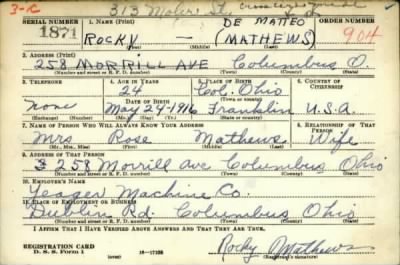 3-K 313 Moler St.
SERIAL NUMBER 1. NAME (Print) DE MATTEO ORDER NUMBER
1871 ROCKY — (MATHEWS) 904
(First) (Middle) (Last)
2. ADDRESS (Print)
258 MORRILL AVE Columbus O.
(Number and street or R. F. D. number) (Town) (County) (State)
3. TELEPHONE 4. AGE IN YEARS 5. PLACE OF BIRTH 6. COUNTRY OF CITIZENSHIP
24 Col. Ohio
DATE OF BIRTH (Town or county)
none May 24-1916 Franklin U.S.A.
(Exchange) (Number) (Mo.) (Day) (Yr.) (State or country)
7. NAME OF PERSON WHO WILL ALWAYS KNOW YOUR ADDRESS 8. RELATIONSHIP OF THAT PERSON
Mrs Rose Mathews Wife
(Mr., Mrs., Miss) (First) (Middle) (Last)
9. ADDRESS OF THAT PERSON
258 Morrill Ave Columbus Ohio
(Number and street or R. F. D. number) (Town) (County) (State)
10. EMPLOYER'S NAME
Yeager Machine Co
11. PLACE OF EMPLOYMENT OR BUSINESS
Dublin Rd. Columbus Ohio
(Number and street or R. F. D. number) (Town) (County) (State)
I AFFIRM THAT I HAVE VERIFIED ABOVE ANSWERS AND THAT THEY ARE TRUE.
REGISTRATION CARD
D. S. S. Form 1 (over) 16—17105 Rocky Mathews
(Registrant's signature)